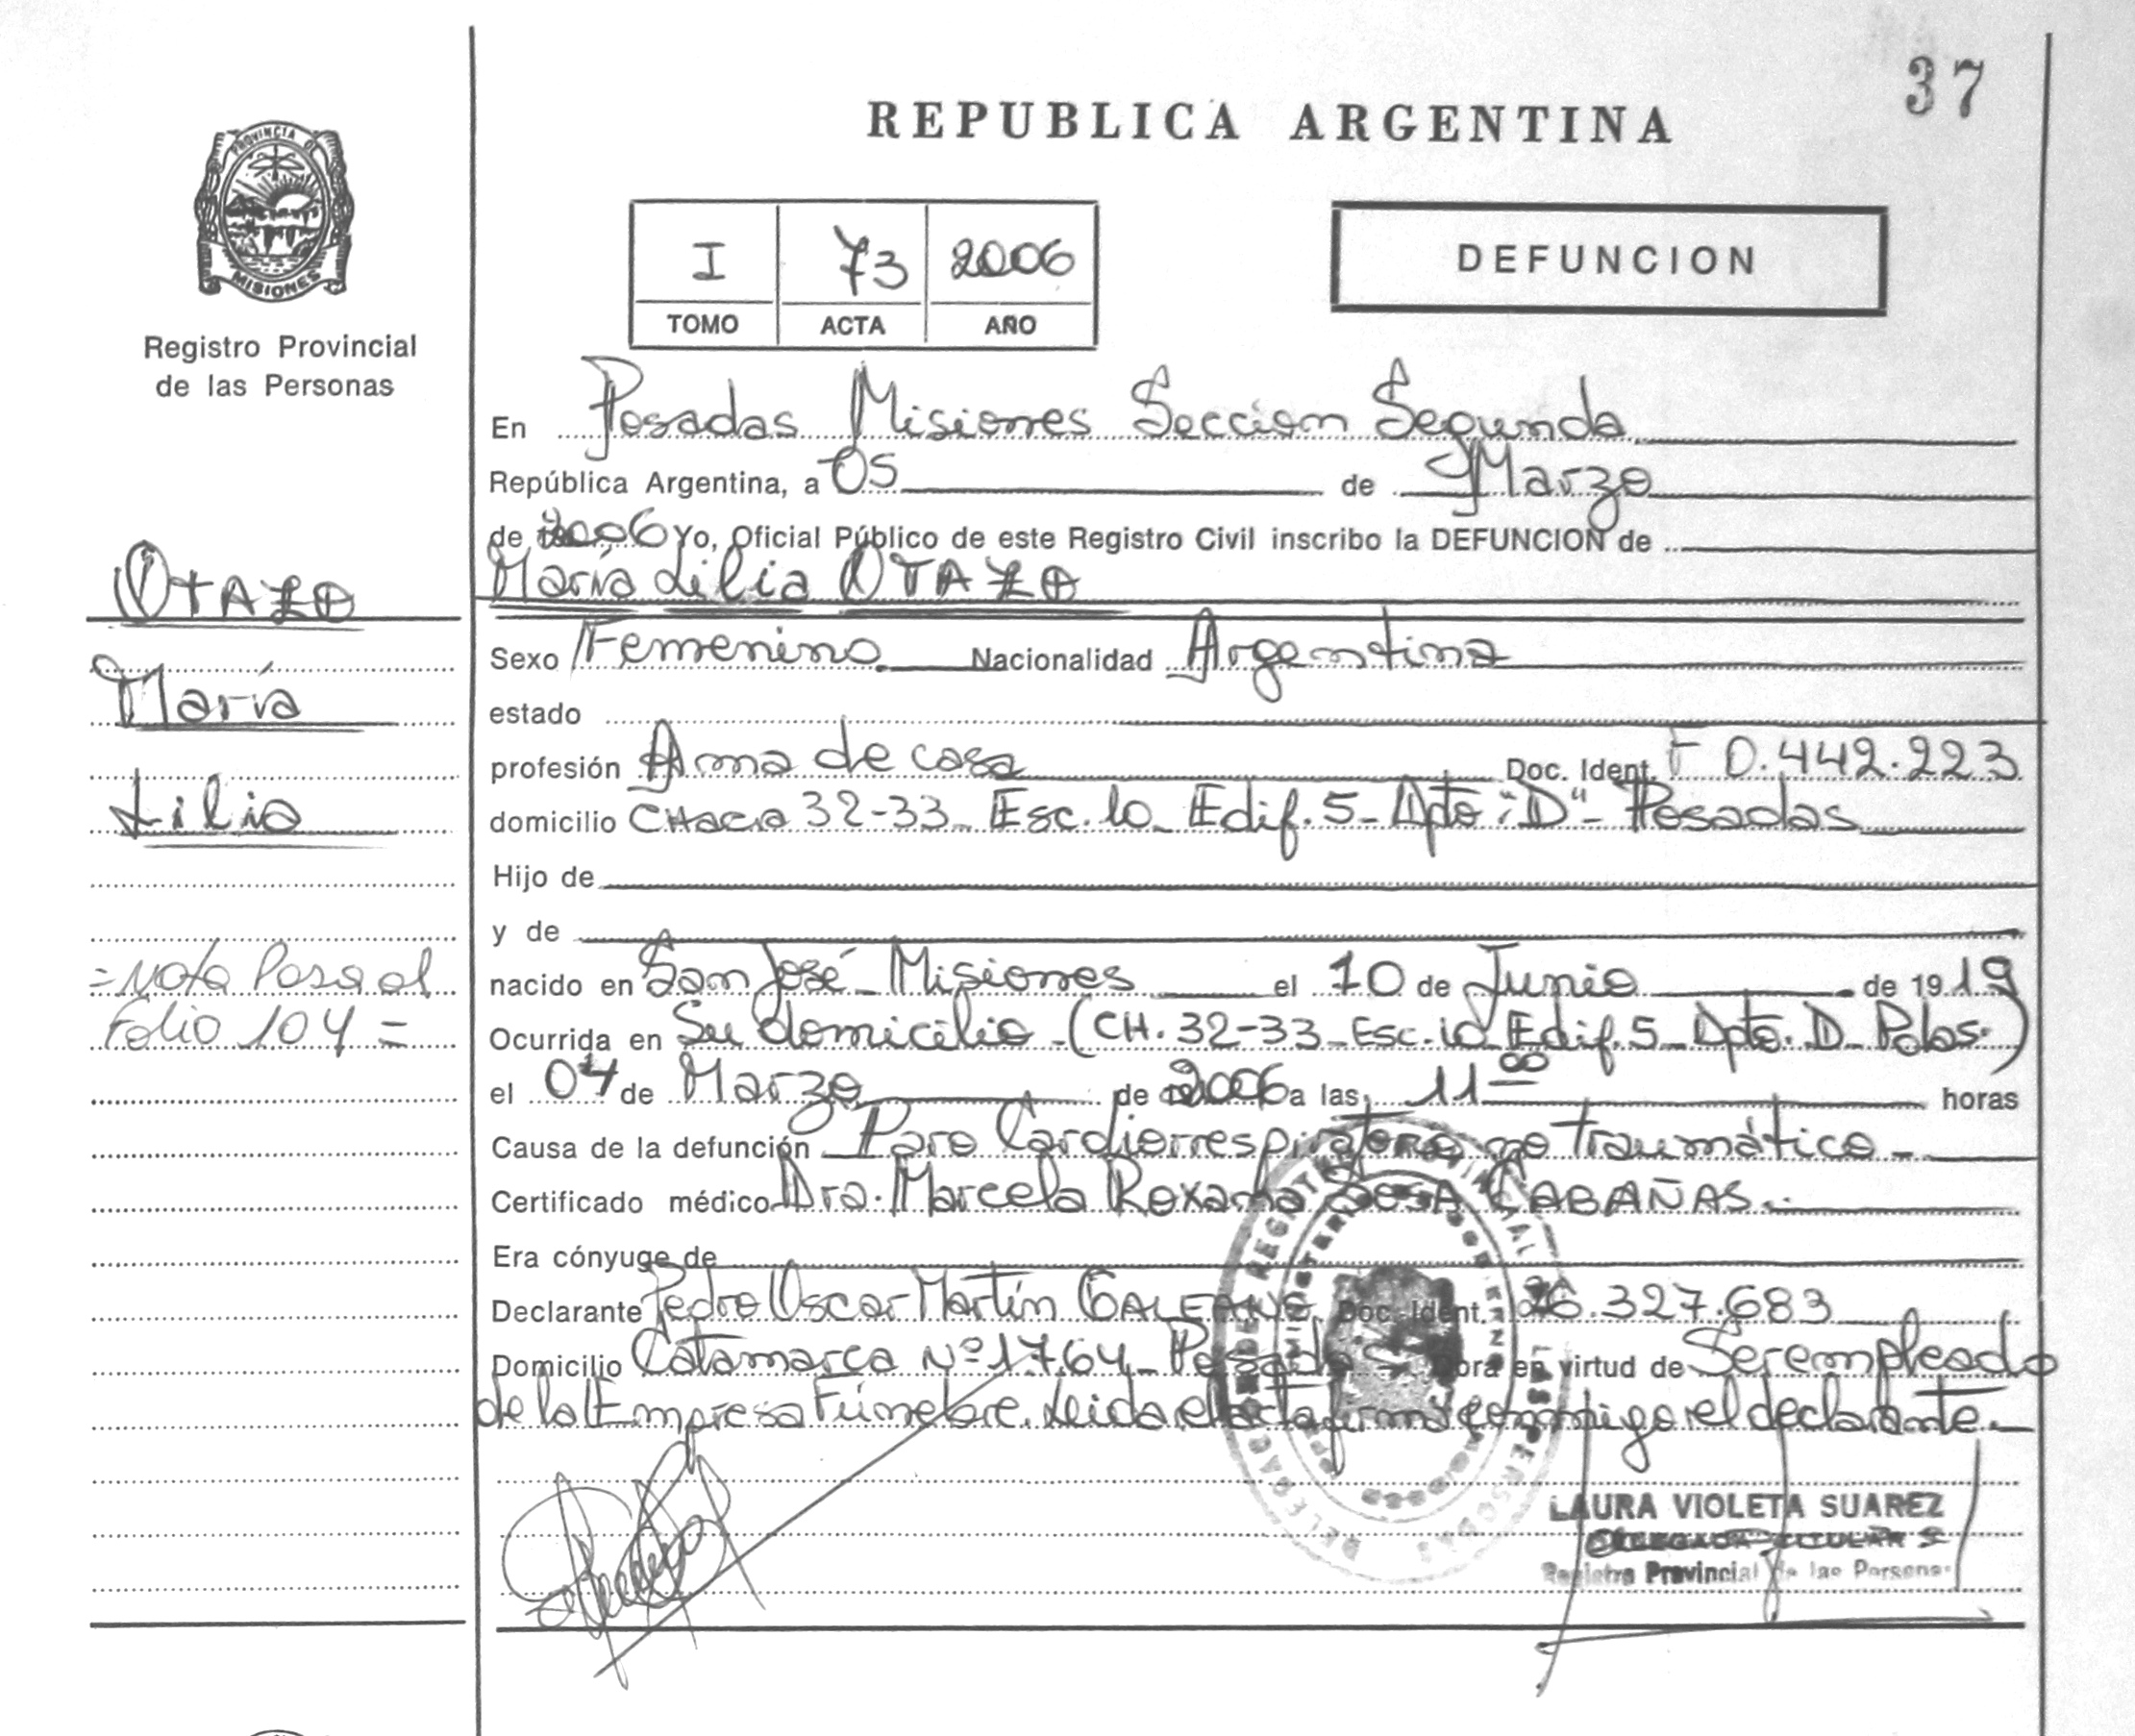 37
REPUBLICA ARGENTINA
PROVINCIA DE
MISIONES
Registro Provincial
de las Personas
I 73 2006
TOMO ACTA AÑO
DEFUNCION
En Posadas Misiones Seccion Segunda
República Argentina, a 05 de Marzo
de 2006 Yo, Oficial Público de este Registro Civil inscribo la DEFUNCION de
María Lilia OTAZO
OTAZO
María
Lilia
Sexo Femenino Nacionalidad Argentina
estado
profesión Ama de casa Doc. Ident. F 0.442.223
domicilio CHacra 32-33 Esc. 10 Edif. 5 - Dpto "D" - Posadas
Hijo de
y de
nacido en San José - Misiones el 10 de Junio de 1919
= Nota Pasa al
Folio 104 =
Ocurrida en Su domicilio - (CH. 32-33 - Esc. 10 Edif. 5 - Dpto. D - Pdas.)
el 04 de Marzo de 2006 a las 11 00 horas
Causa de la defunción Paro Cardiorrespiratorio no traumático -
Certificado médico Dra. Marcela Roxana SOSA CABAÑAS.-
Era cónyuge de
Declarante Pedro Oscar Martín GALEANO Doc. Ident. 26.327.683
Domicilio Catamarca Nº 1764 - Posadas - Obra en virtud de Ser empleado
de la Empresa Fúnebre. Leida el acta firma conmigo el declarante.-
LAURA VIOLETA SUAREZ
DELEGADA TITULAR
Registro Provincial de las Personas